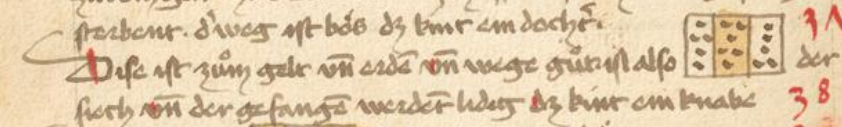 sterbent. d' weg ist bo᷒s dz kint ein docht'. 3Λ
Dise ist zům gelt vn̄ erdē vn̄ wege gůt ist also der
siech vn̄ der gefangē werdēt lideg dz kint ein knabe 38